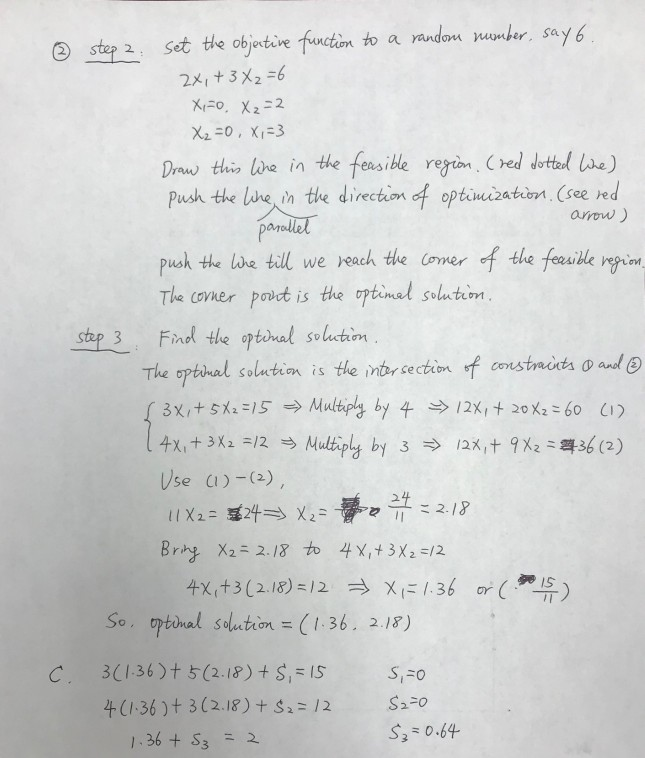 ② step 2: Set the objective function to a random number, say 6.
2X₁ + 3X₂ = 6
X₁=0, X₂=2
X₂=0, X₁=3
Draw this line in the feasible region. (red dotted line)
Push the line in the direction of optimization. (see red arrow)
parallel
push the line till we reach the corner of the feasible region.
The corner point is the optimal solution.
step 3: Find the optimal solution.
The optimal solution is the intersection of constraints ① and ②
{ 3X₁ + 5X₂ = 15 ⇒ Multiply by 4 ⇒ 12X₁ + 20X₂ = 60 (1)
4X₁ + 3X₂ = 12 ⇒ Multiply by 3 ⇒ 12X₁ + 9X₂ = 36 (2)
Use (1) - (2),
11X₂ = 24 ⇒ X₂ = 24/11 = 2.18
Bring X₂ = 2.18 to 4X₁ + 3X₂ = 12
4X₁ + 3(2.18) = 12 ⇒ X₁ = 1.36 or (15/11)
So, optimal solution = (1.36, 2.18)
C. 3(1.36) + 5(2.18) + S₁ = 15 S₁=0
4(1.36) + 3(2.18) + S₂ = 12 S₂=0
1.36 + S₃ = 2 S₃ = 0.64